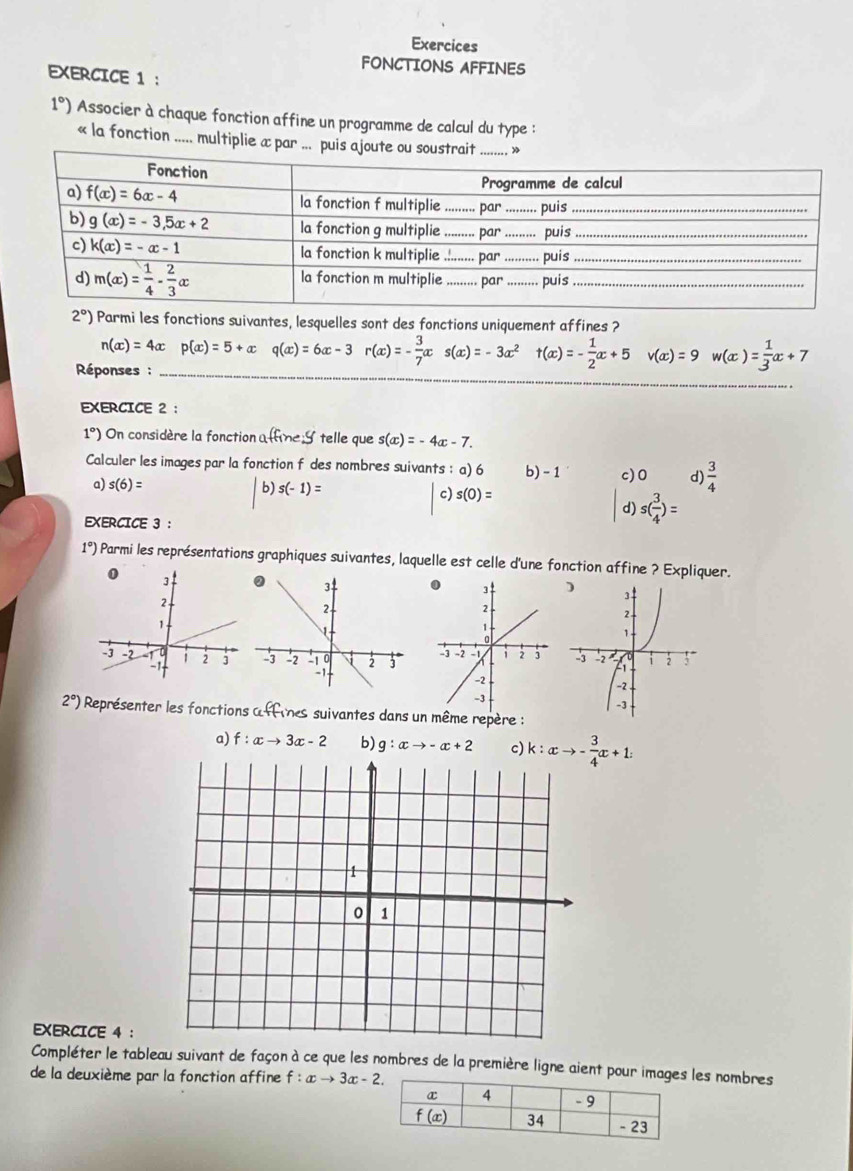 Exercices
FONCTIONS AFFINES
EXERCICE 1 :
1°) Associer à chaque fonction affine un programme de calcul du type :
« la fonction ..... multiplie x par ... puis ajoute ou soustrait ........ »
Fonction Programme de calcul
a) f(x) = 6x - 4 la fonction f multiplie ......... par ......... puis ........
b) g (x) = - 3,5x + 2 la fonction g multiplie ......... par ......... puis ........
c) k(x) = - x - 1 la fonction k multiplie ......... par .......... puis ........
d) m(x) = 1/4 - 2/3 x la fonction m multiplie ......... par ......... puis ........
2°) Parmi les fonctions suivantes, lesquelles sont des fonctions uniquement affines ?
n(x) = 4x p(x) = 5 + x q(x) = 6x - 3 r(x) = - 3/7 x s(x) = - 3x² t(x) = - 1/2 x + 5 v(x) = 9 w(x ) = 1/3 x + 7
Réponses : ........
EXERCICE 2 :
1°) On considère la fonction affine S telle que s(x) = - 4x - 7.
Calculer les images par la fonction f des nombres suivants : a) 6 b) - 1 c) 0 d) 3/4
a) s(6) = b) s(- 1) = c) s(0) = d) s(3/4) =
EXERCICE 3 :
1°) Parmi les représentations graphiques suivantes, laquelle est celle d'une fonction affine ? Expliquer.
1
3
2
1
-3 -2 -1 0 1 2 3
-1
2
3
2
1
-3 -2 -1 0 1 2 3
-1
3
2
1
0
-3 -2 -1 1 2 3
-2
-3
3
2
1
-3 -2 -1 0 1 2 3
-1
-2
-3
2°) Représenter les fonctions affines suivantes dans un même repère :
a) f : x → 3x - 2 b) g : x → - x + 2 c) k : x → - 3/4 x + 1:
1
0 1
EXERCICE 4 :
Compléter le tableau suivant de façon à ce que les nombres de la première ligne aient pour images les nombres
de la deuxième par la fonction affine f : x → 3x - 2.
x 4 - 9
f (x) 34 - 23